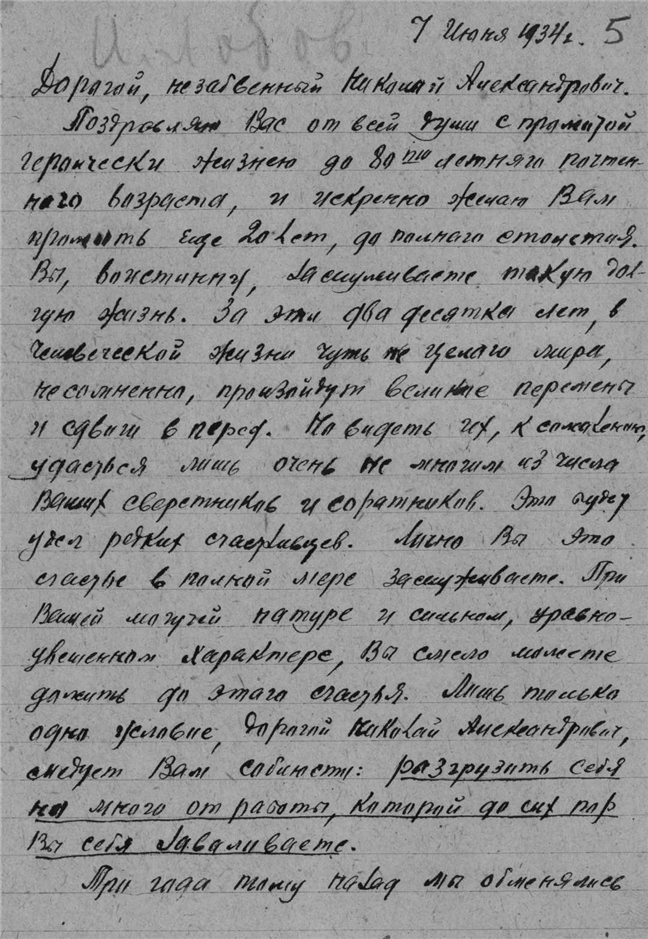 И. Лобов.
7 Июня 1934 г. 5
Дорогой, незабвенный Николай Александрович.
Поздравляю Вас от всей души с прожитой
героически жизнею до 80ти летняго почтен-
наго возраста, и искренно желаю Вам
прожить еще 20 лет, до полнаго столетия.
Вы, воистинну, заслуживаете такую дол-
гую жизнь. За эти два десятка лет, в
человеческой жизни чуть не целаго мира,
несомненно, произойдут великие перемены
и сдвиги в перед. Но видеть их, к сожалению,
удасться лишь очень не многим из числа
Ваших сверстников и соратников. Это будет
удел редких счастливцев. Лично Вы это
счастье в полной мере заслуживаете. При
Вашей могучей натуре и сильном, уравно-
увешенном характере, Вы смело можете
дожить до этаго счастья. Лишь только
одно условие, дорогой Николай Александрович,
следует Вам соблюсти: разгрузить себя
на много от работы, которой до сих пор
Вы себя заваливаете.
Три года тому назад мы обменялись